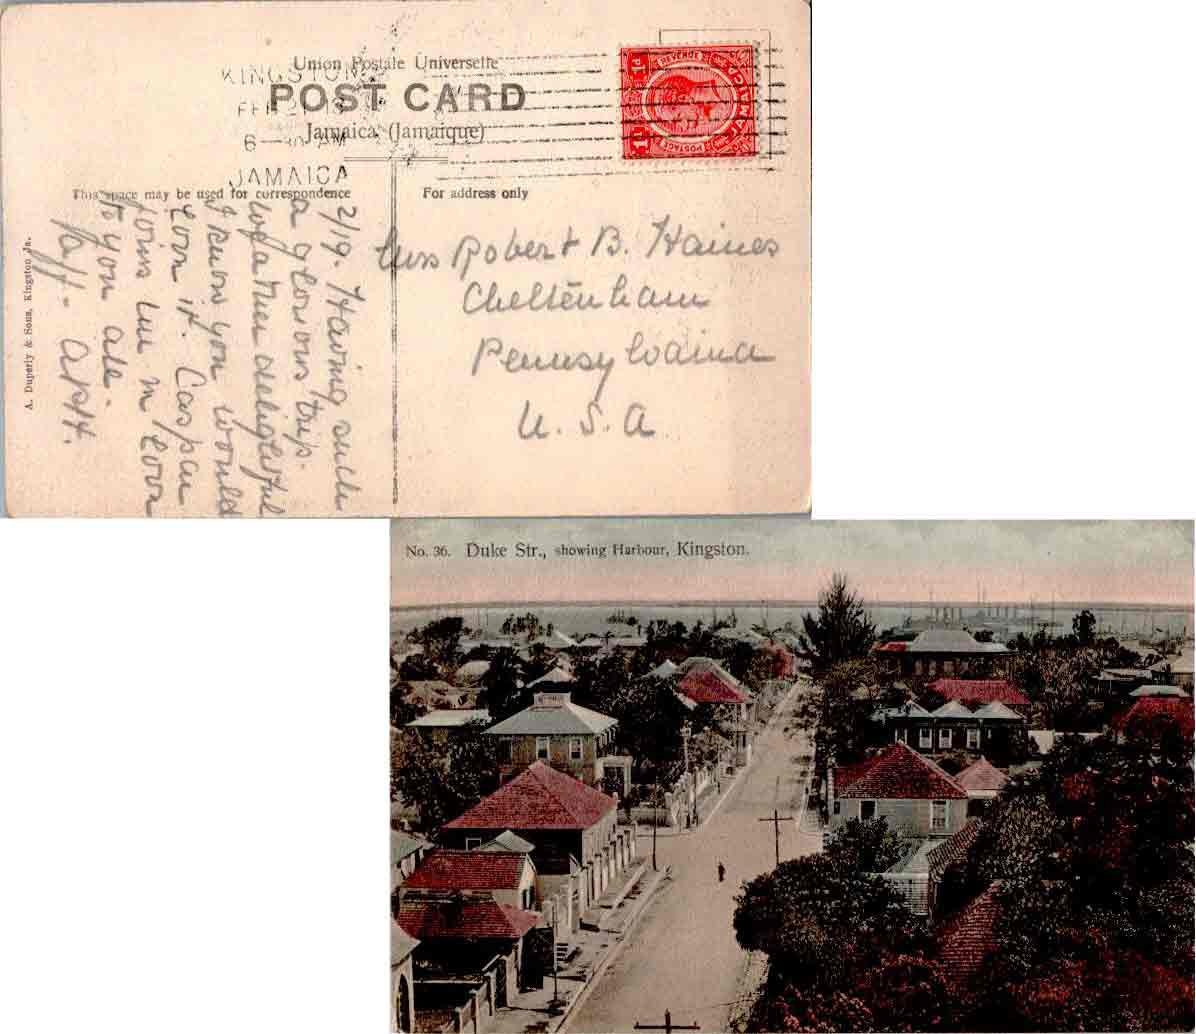 Union Postale Universelle
POST CARD
Jamaica (Jamaique)
KINGSTON
6—30 AM
JAMAICA
REVENUE
JAMAICA
POSTAGE
1d
1d
This space may be used for correspondence
For address only
2/19. Having such
a glorious trip.
Weather delightful
I know you would
love it. Caspar
joins me in love
to you all.
Aff.
Mrs Robert B. Haines
Cheltenham
Pennsylvania
U.S.A
A. Duperly & Sons, Kingston Ja.
No. 36. Duke Str., showing Harbour, Kingston.